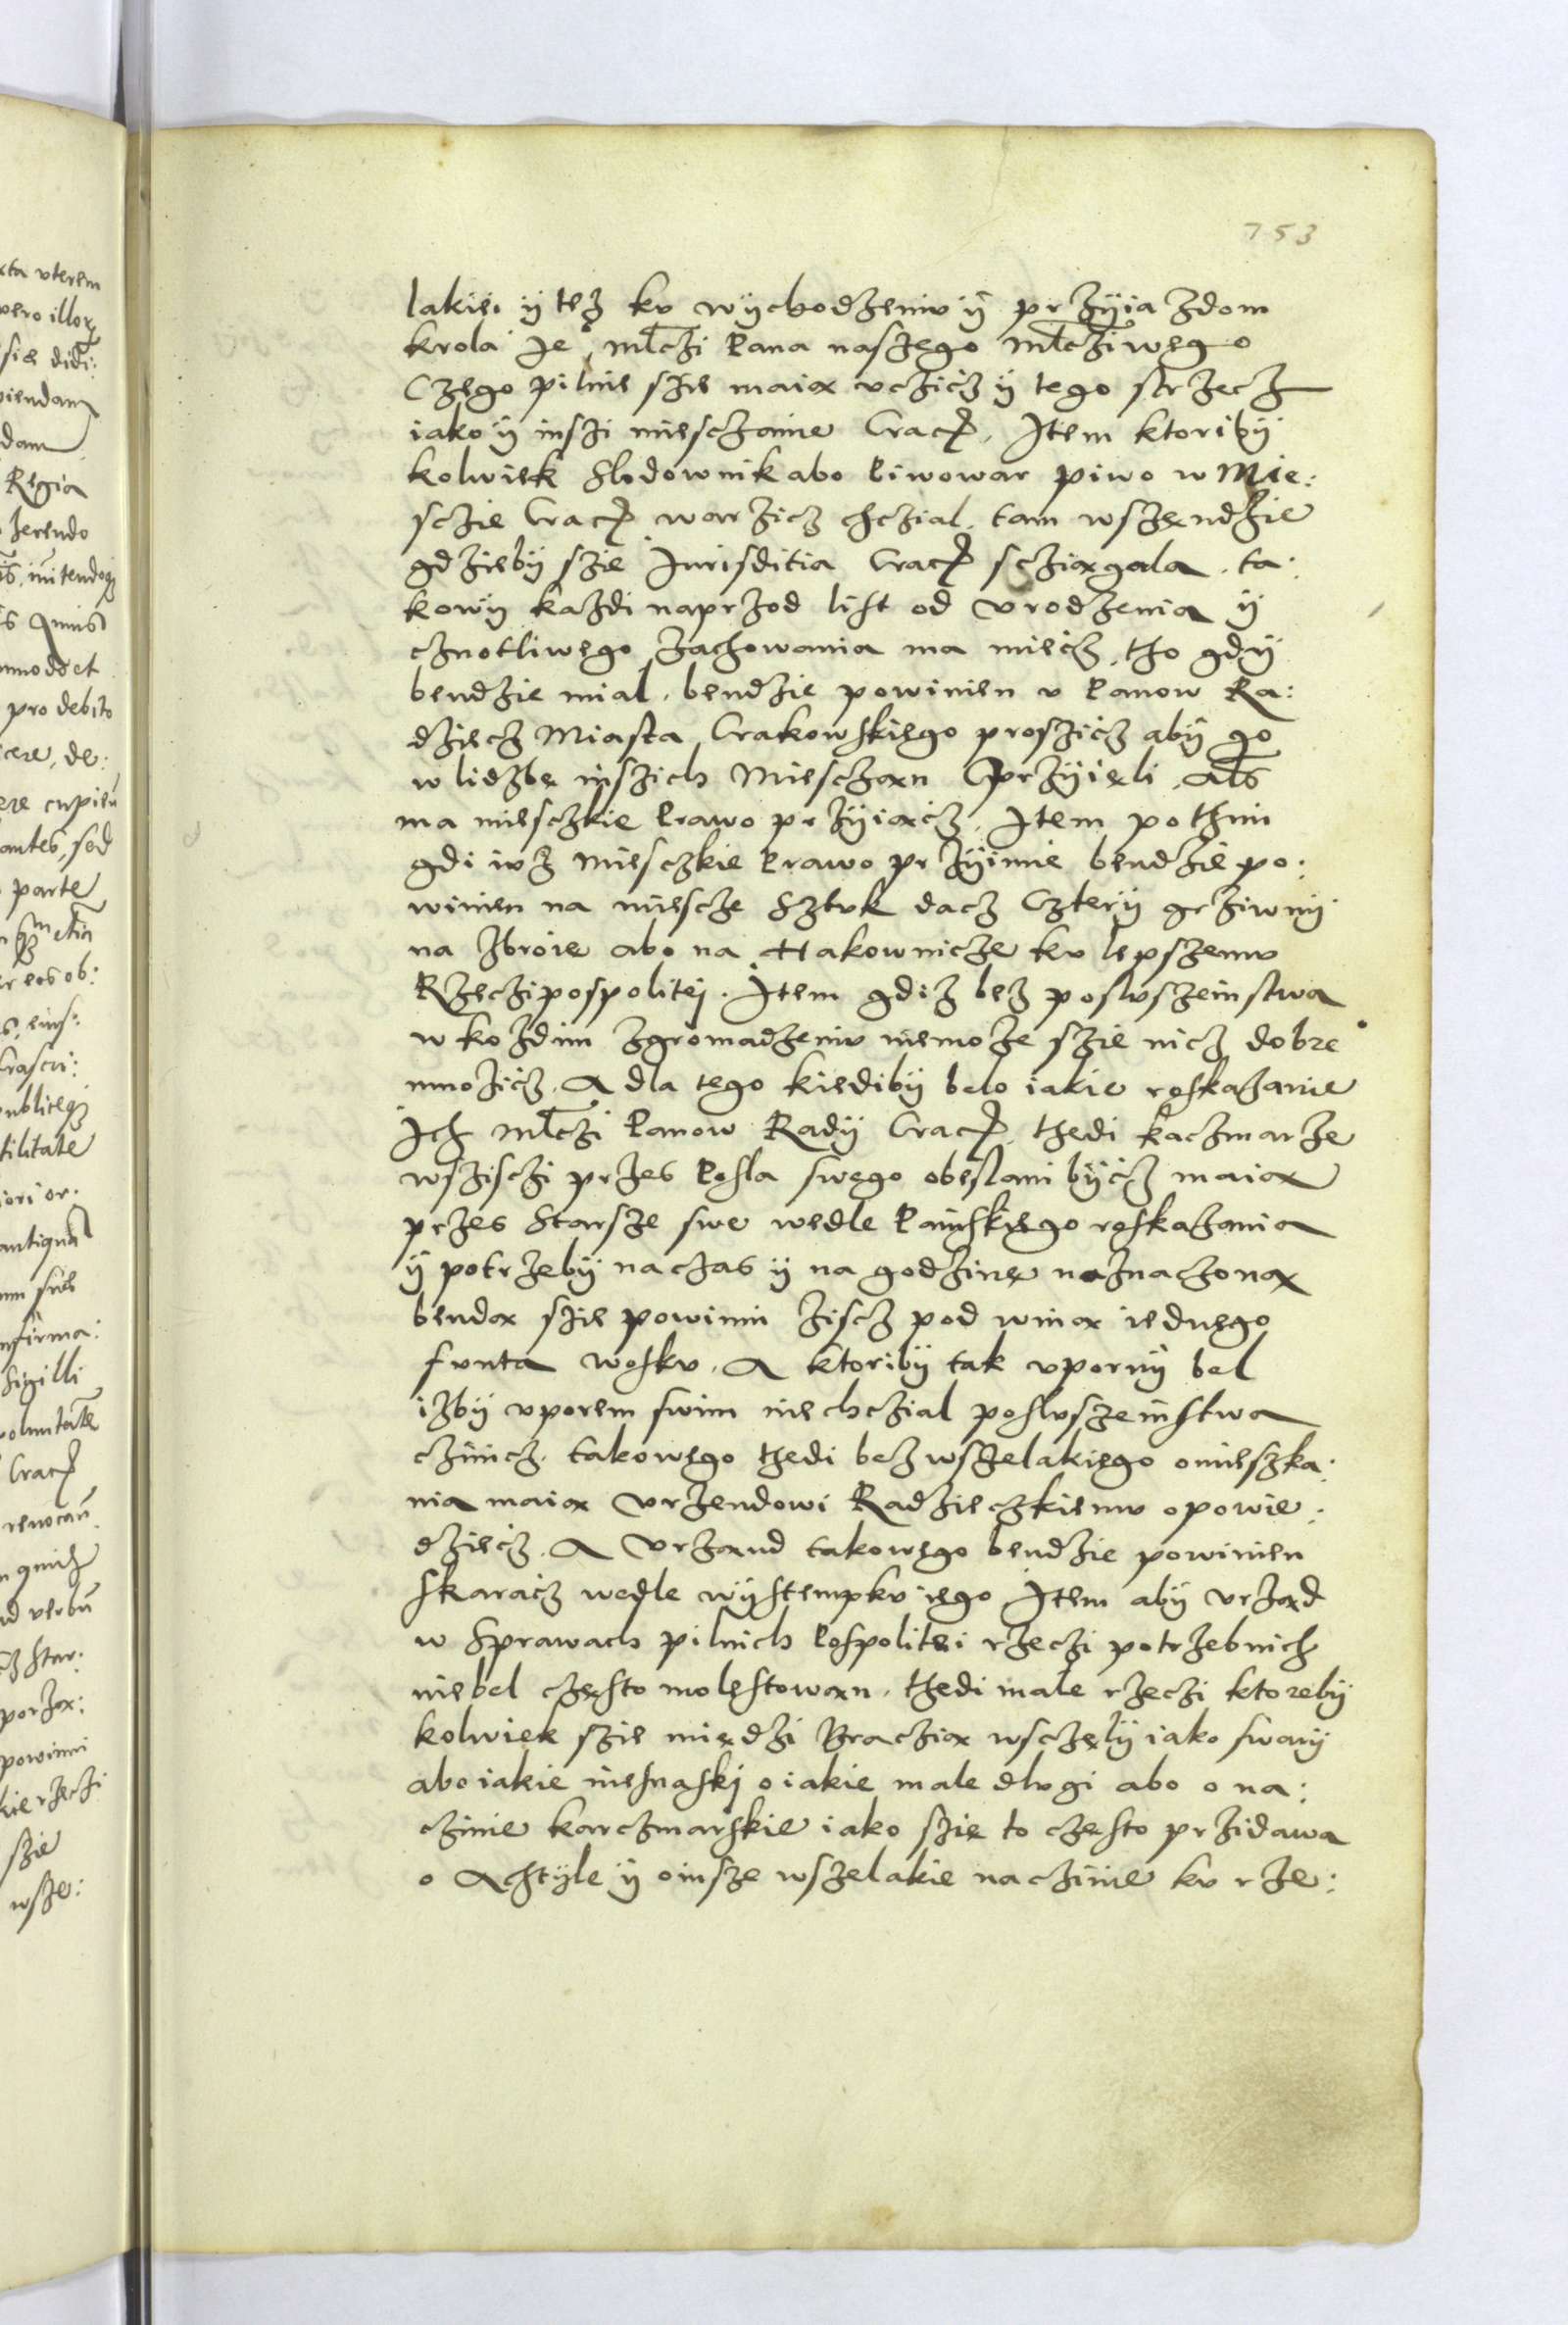 753
lakiei ÿ tez ku wÿchodzeniu ÿ przÿiazdom
krola Je° Mlczi Pana naszego Mlcziwego
Czego pilnie szie maiax uczicz ÿ tego strzecz
iako ÿ inszi miesczanie Crac. Item ktoribÿ
kolwiek Slodownik abo Piwowar piwo w Mie:
sczie Crac warzicz chczial, tam wszendzie
gdziebÿ szie Jurisditia Crac scziaxgala, ta:
kowÿ kazdi naprzod list od urodzenia ÿ
cznotliwego zachowania ma miecz, tho gdÿ
bendzie mial, bendzie powinien u Panow Ra:
dziecz Miasta Crakowskiego proszicz abÿ go
w lidzbe inszich Miesczaxn przÿieli, als
ma miesczkie Prawo przÿiaxcz, Item pothim
gdi iuz Miesczkie Prawo przÿimie bendzie po:
winien na miescze Sztuk dacz Czterÿ grziwnÿ
na zbroie abo na Hakownicze ku lepszemu
Rzeczipospolitej. Item gdiz bez posluszeinstwa
w kozdim zgromadzeniu niemoze szie nicz dobre°
mnozicz. A dla tego kiedibÿ belo iakie roskazanie
Ich Mlczi Panow Radÿ Crac, thedi kaczmarze
wsziszczi przes Posla swego obeslani bÿcz maiax
przes Starsze swe wedle Painskiego roskazania
ÿ potrzebÿ na czas ÿ na godzine naznaczonax
bendax szie powinni ziscz pod winax iednego
funta wosku. A ktoribÿ tak upornÿ bel
izbÿ uporem swim niechczial posluszeinstwa
czinicz, takowego thedi bez wszelakiego omieszka:
nia maiax Urzendowi Radzieczkiemu opowie:
dziecz. A Urzaxnd takowego bendzie powinien
skaracz wedle wÿstempku iego Item abÿ urzaxd
w Sprawach pilnich Pospolitei rzeczi potrzebnich
niebel czesto molestowaxn, thedi male rzeczi ktorebÿ
kolwiek szie miedzi Bracziax wsczelÿ iako swarÿ
abo iakie niesnaski o iakie male dlugi abo o na:
czinie karczmarskie iako szie to czesto przidawa
o Achtÿle ÿ oinsze wszelakie naczinie ku rze: